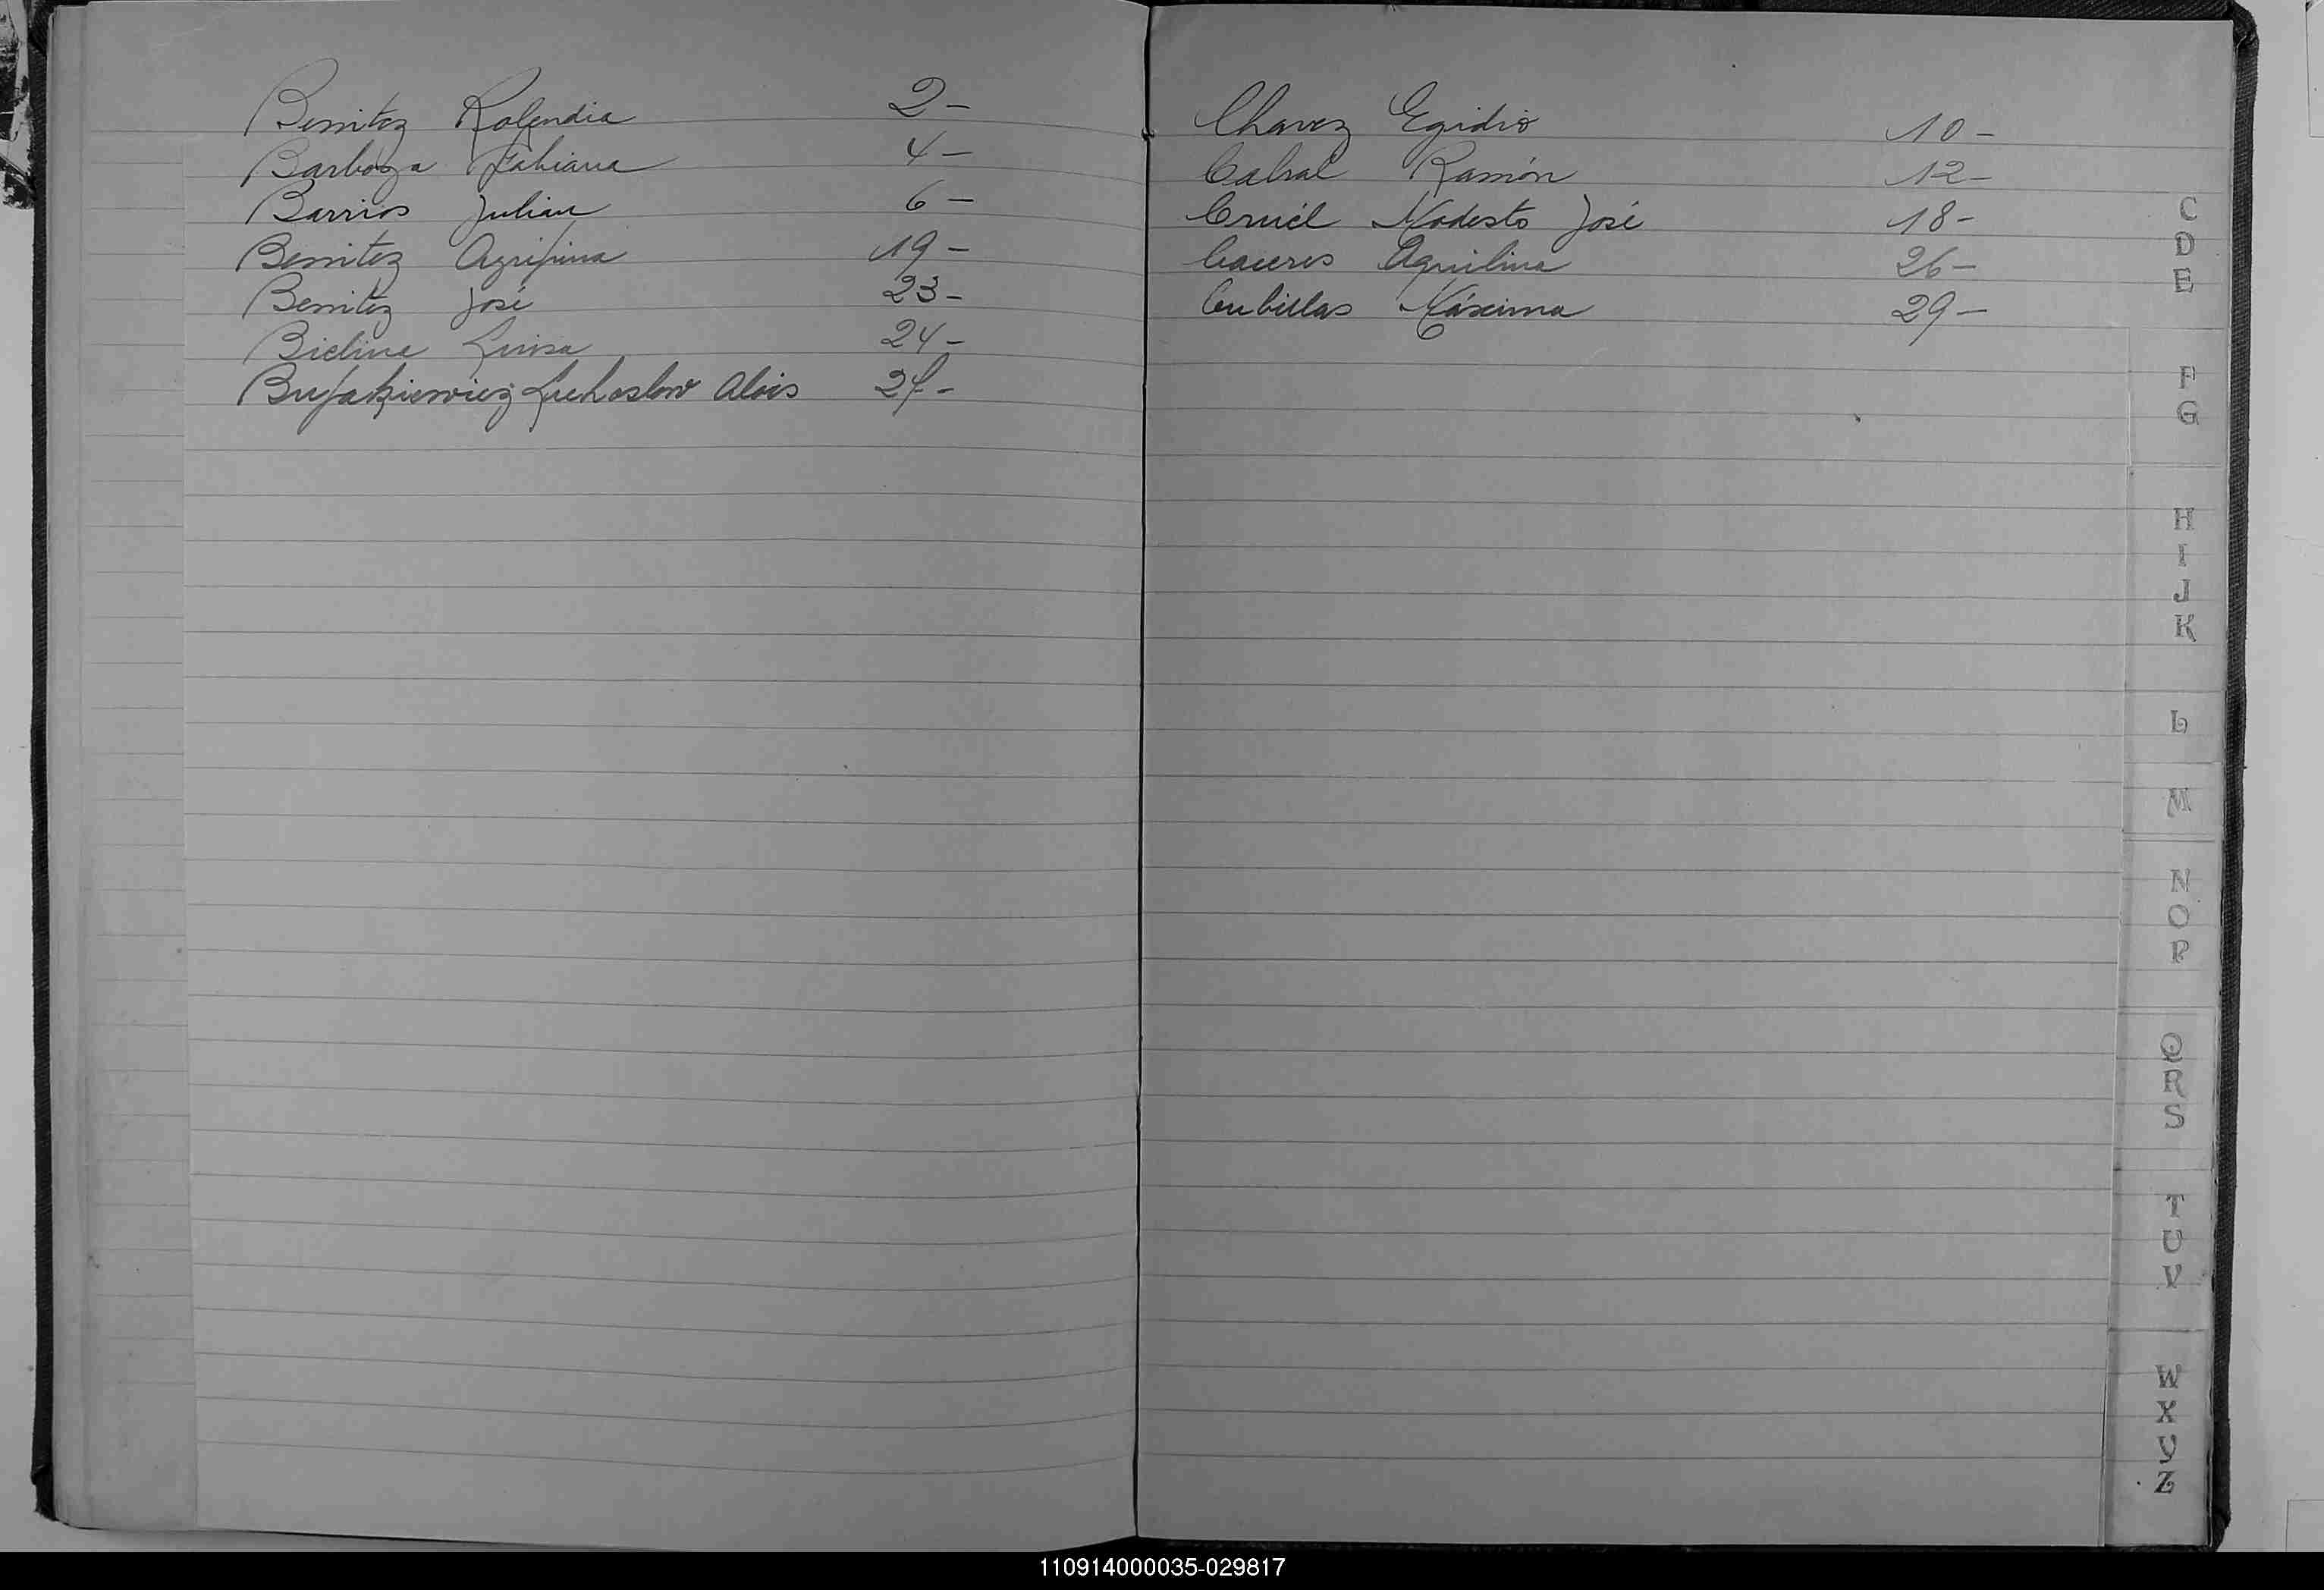 Benitez Rofendia 2-
Barboza Fabiana 4-
Barrios Julian 6-
Benitez Agripina 19-
Benitez José 23-
Bielina Luisa 24-
Alois 27-
Chavez Egidio 10-
Cabral Ramón 12-
Cruél Modesto José 18-
Caceres Aquilina 26-
Cubillas Máxima 29-
C
D
E
F
G
H
I
J
K
L
M
N
O
P
Q
R
S
T
U
V
W
X
Y
Z
110914000035-029817